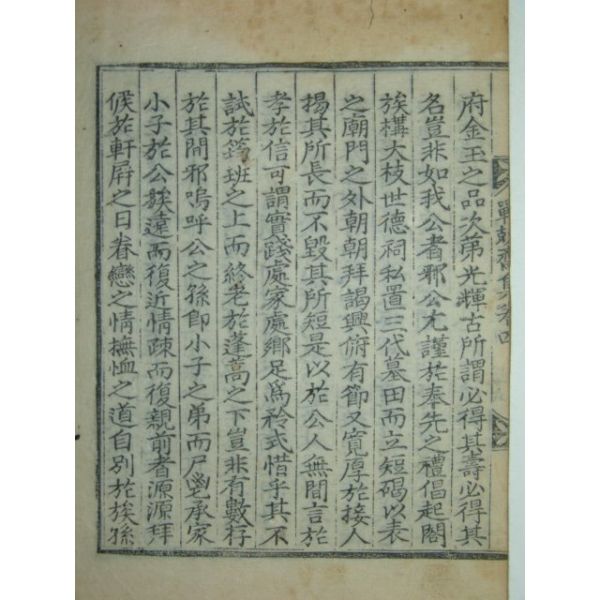 府金玉之品次第光輝古所謂必得其壽必得其
名豈非如我公者邪公尤謹於奉先之禮倡起閤
族構大枝世德祠私置三代墓田而立短碣以表
之廟門之外朝朝拜謁興俯有節又寬厚於接人
揚其所長而不毀其所短是以於公人無間言於
孝於信可謂實踐處家處鄉足爲矜式惜乎其不
試於鵷班之上而終老於蓬蒿之下豈非有數存
於其間邪嗚呼公之孫卽小子之弟而尸鬯承家
小子於公族遠而復近情疎而復親前者源源拜
候於軒屛之日眷戀之情撫恤之道自別於族孫